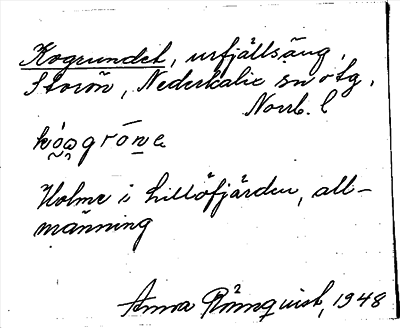 Kogrundet, urfjällsäng,
Storön, Nederkalix sn o tg,
Norrb. l
kóạgrōne
Holme i Lillöfjärden, all-
männing
Anna Rönnquist, 1948